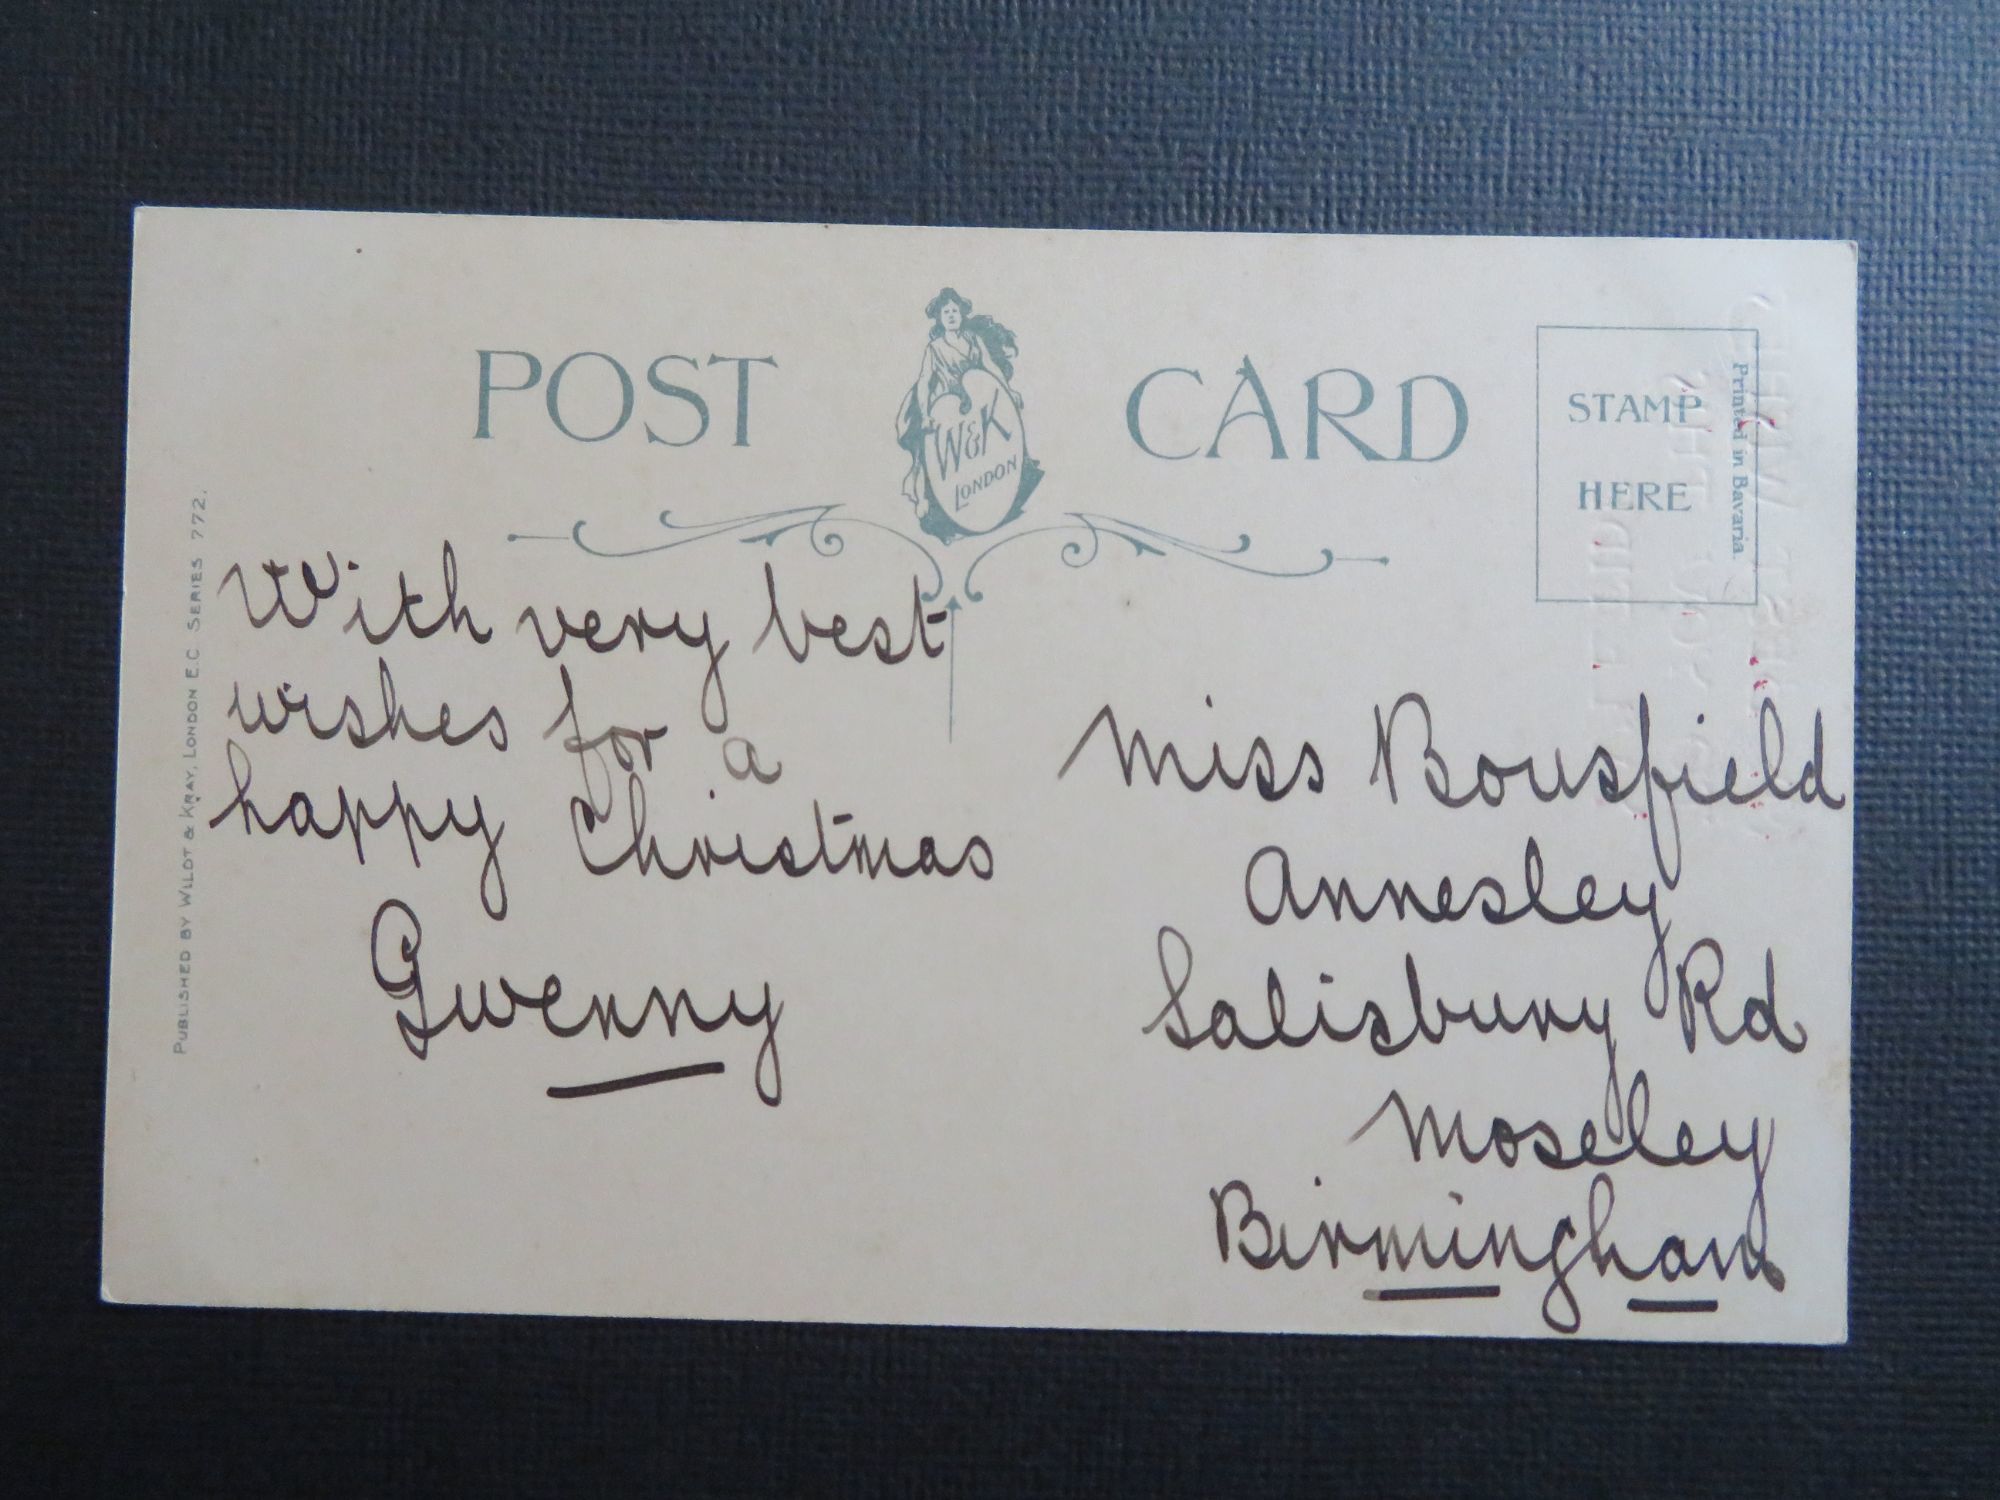 POST CARD
W&K
LONDON
STAMP
HERE
Printed in Bavaria
PUBLISHED BY WILDT & KRAY, LONDON E.C. SERIES 772.
With very best
wishes for a
happy Christmas
Gwenny
Miss Bousfield
Annesley
Salisbury Rd
Moseley
Birmingham